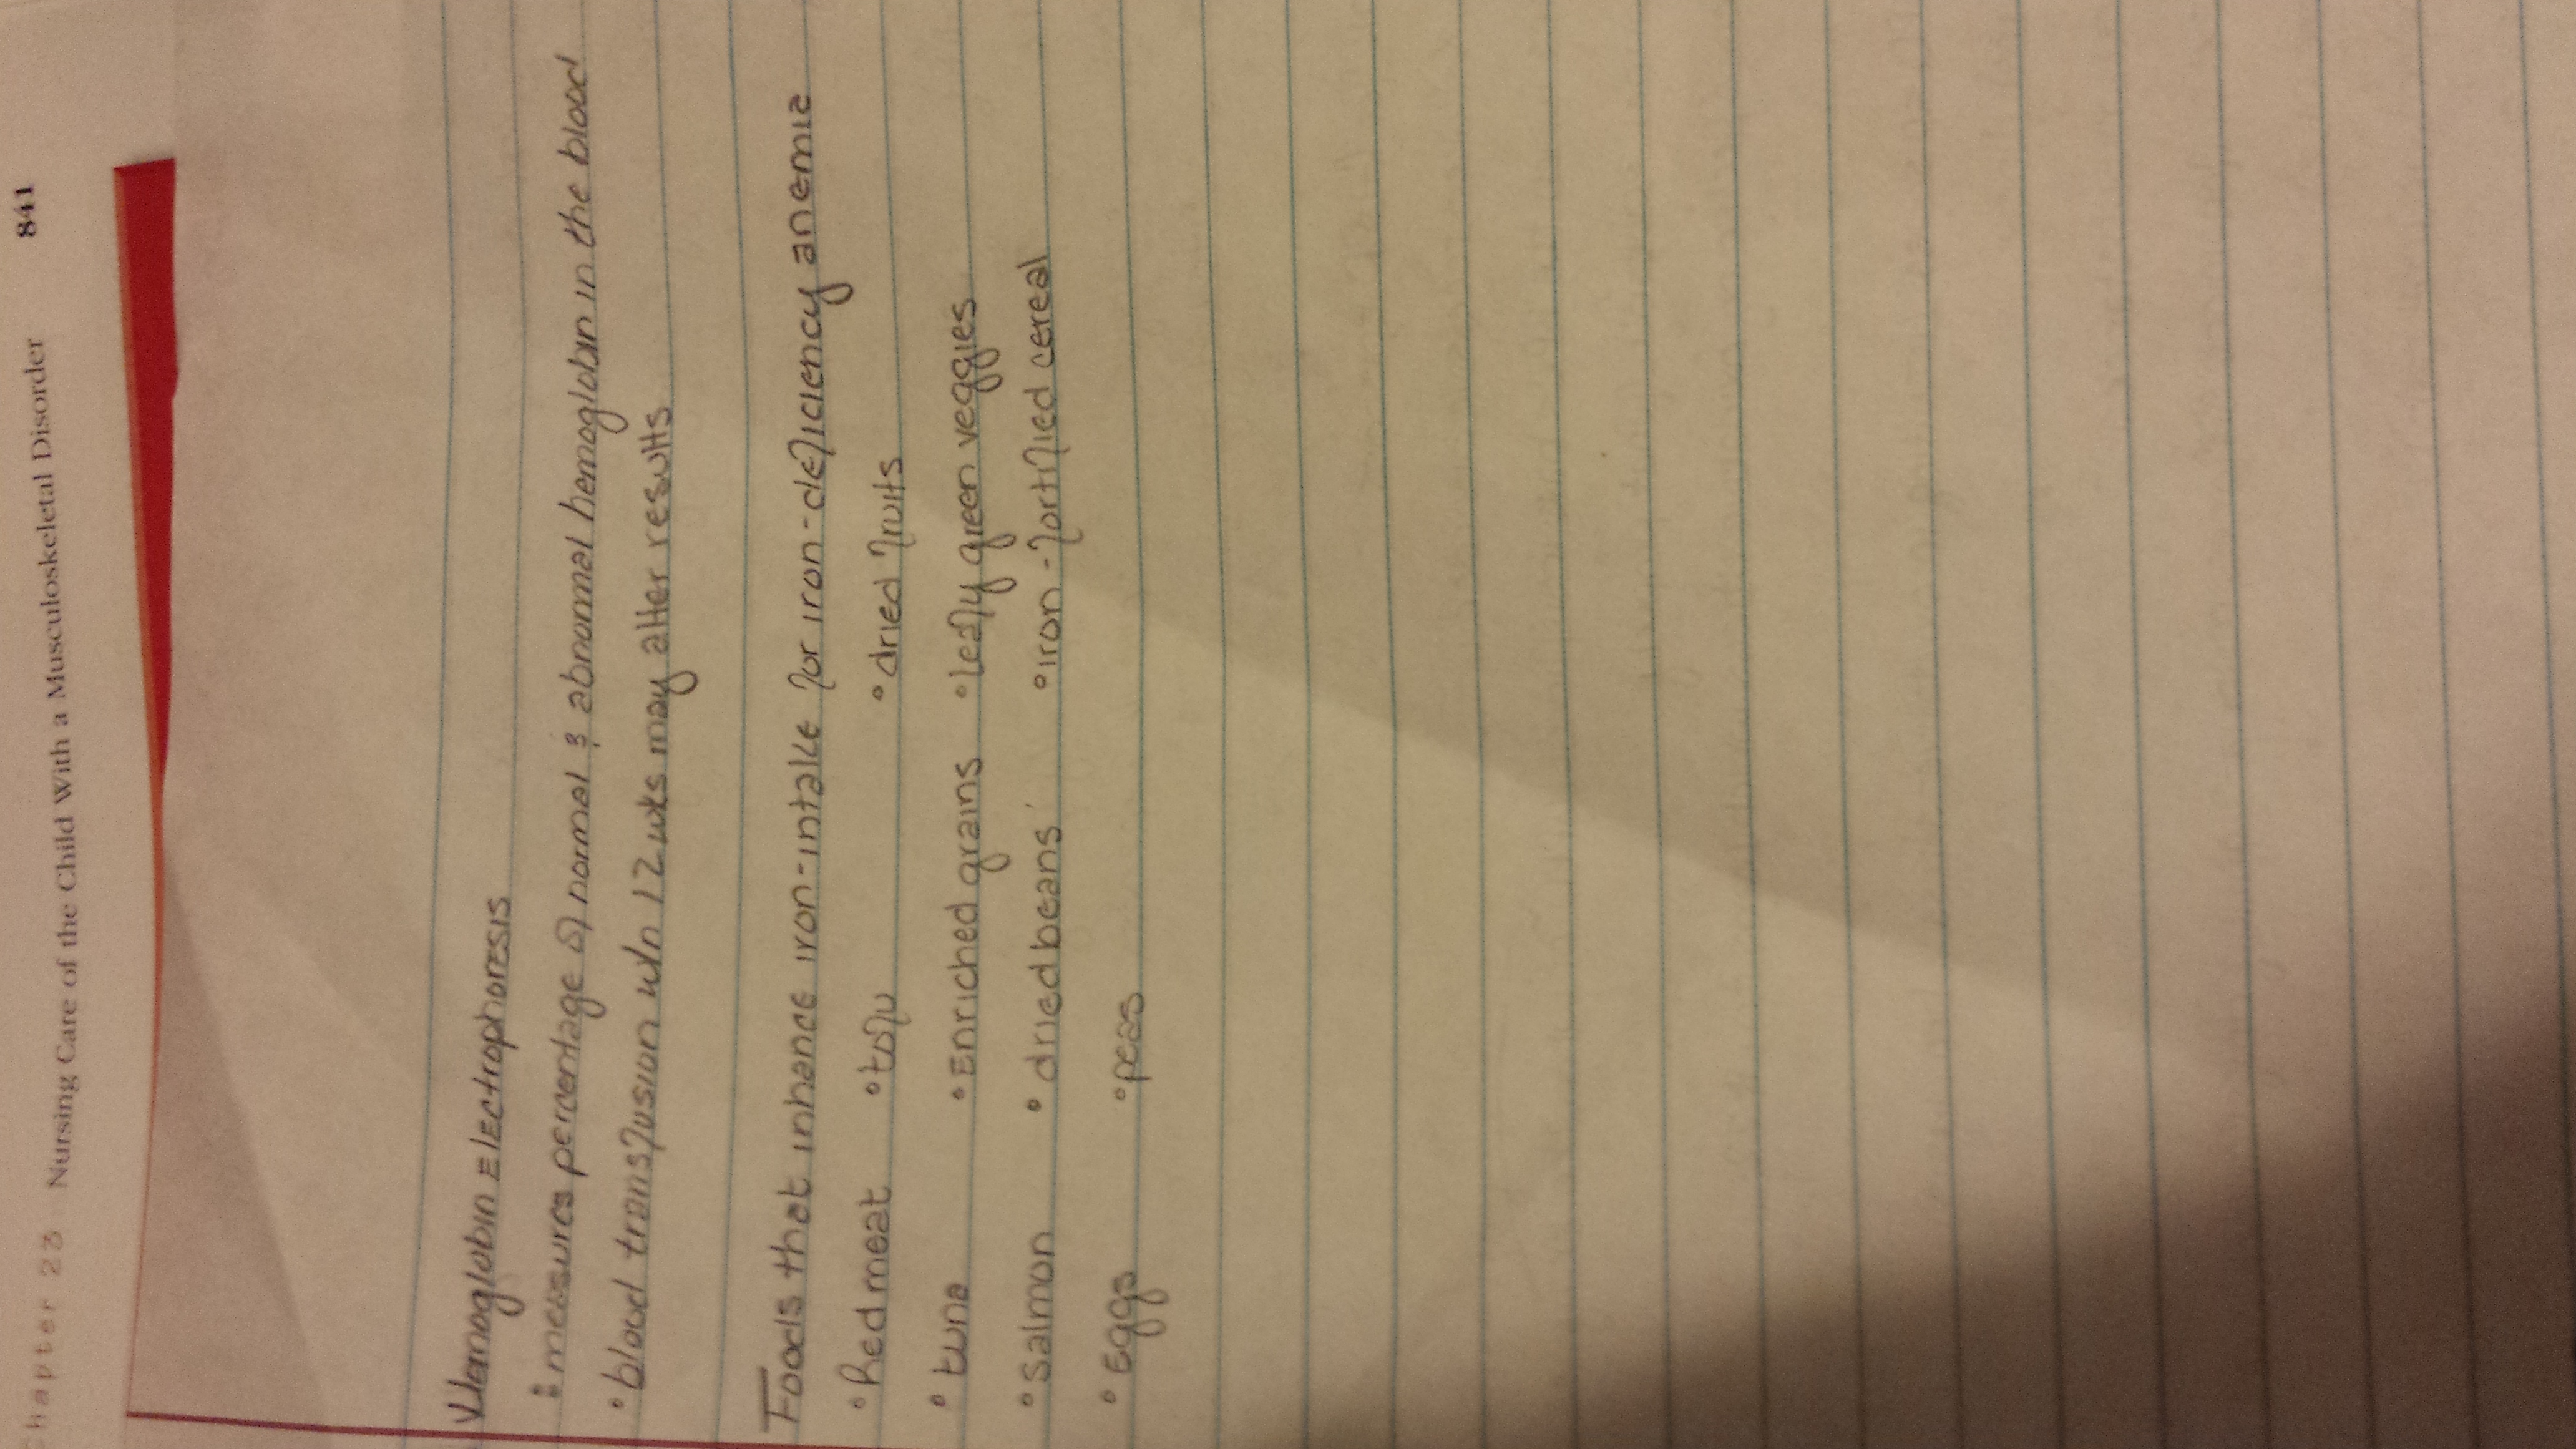 Chapter 23 Nursing Care of the Child With a Musculoskeletal Disorder 841
Hemoglobin Electrophoresis
• measures percentage of normal & abnormal hemoglobin in the blood
• blood transfusion w/n 12 wks may alter results
Foods that inhance iron-intake for iron-deficiency anemia
• Red meat • tofu • dried fruits
• tuna • Enriched grains • leafy green veggies
• Salmon • dried beans • iron-fortified cereal
• Eggs • peas